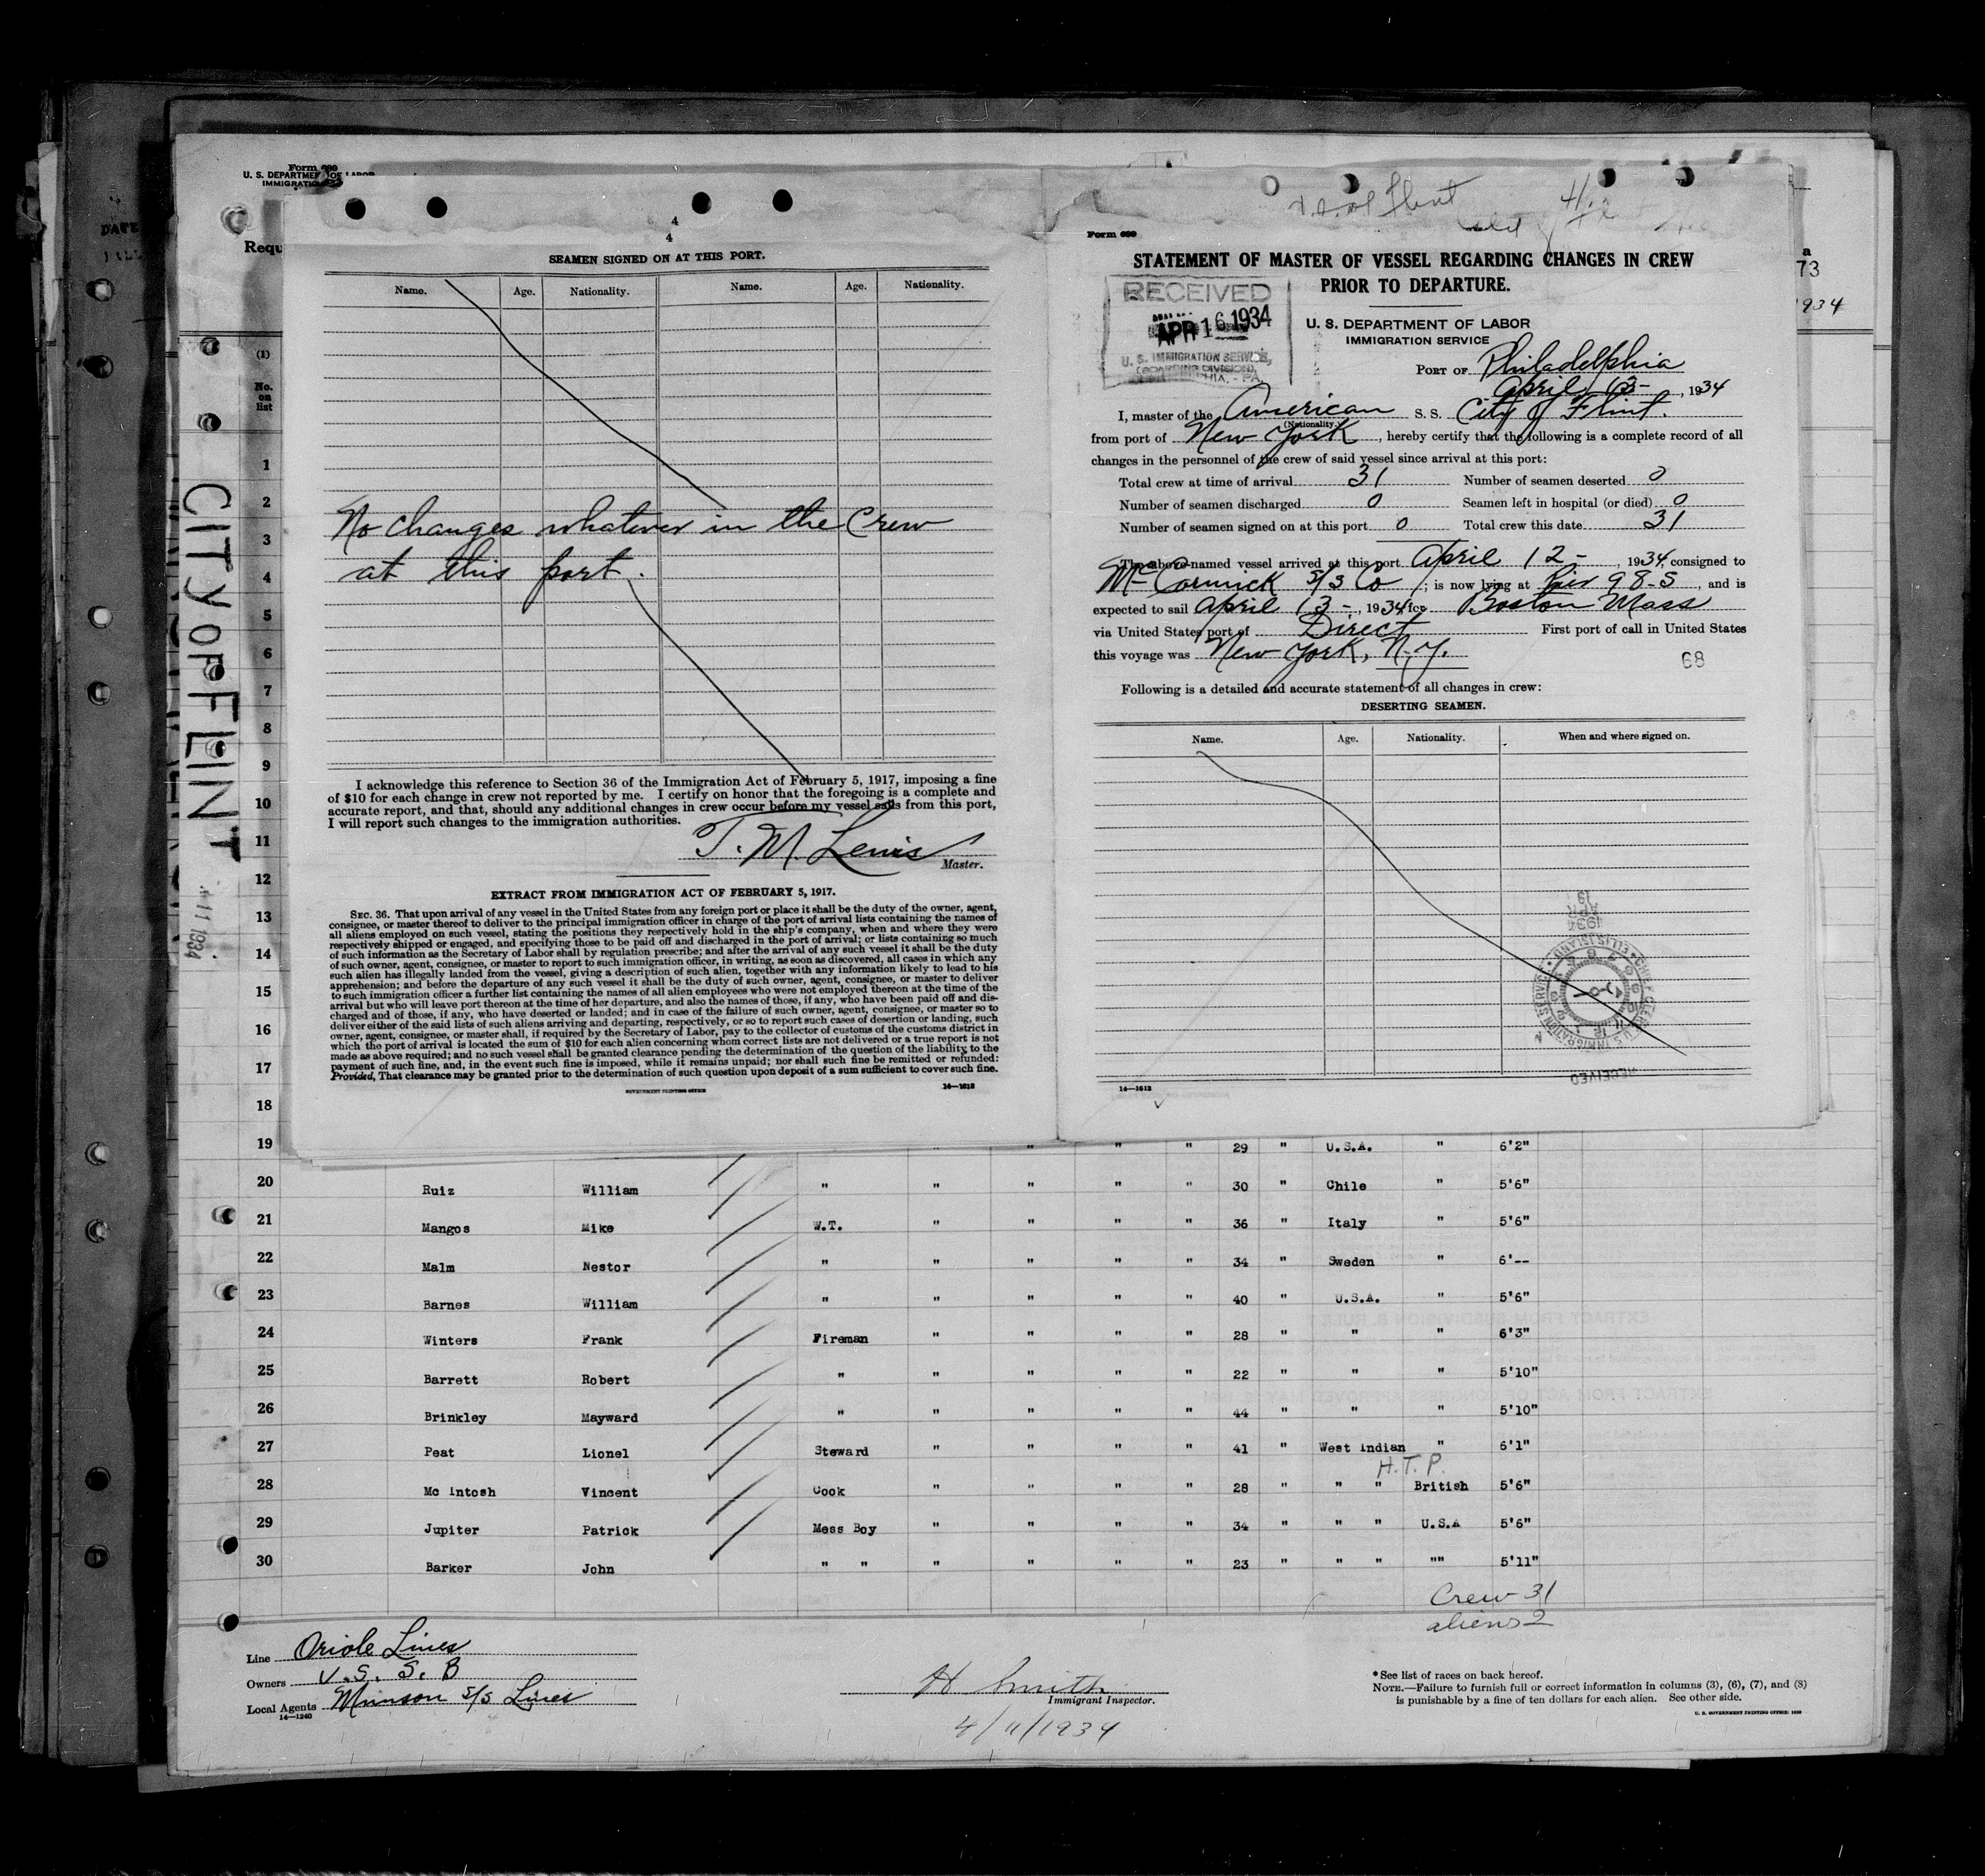 Form 689
U. S. DEPARTMENT OF LABOR
IMMIGRATION
Requ
(1)
No.
on
list
CITY OF FLINT
11 1934
4
4
SEAMEN SIGNED ON AT THIS PORT.
Name. Age. Nationality. Name. Age. Nationality.
No changes whatever in the Crew
at this port.
I acknowledge this reference to Section 36 of the Immigration Act of February 5, 1917, imposing a fine
of $10 for each change in crew not reported by me. I certify on honor that the foregoing is a complete and
accurate report, and that, should any additional changes in crew occur before my vessel sails from this port,
I will report such changes to the immigration authorities.
T. M. Lewis
Master.
EXTRACT FROM IMMIGRATION ACT OF FEBRUARY 5, 1917.
SEC. 36. That upon arrival of any vessel in the United States from any foreign port or place it shall be the duty of the owner, agent,
consignee, or master thereof to deliver to the principal immigration officer in charge of the port of arrival lists containing the names of
all aliens employed on such vessel, stating the positions they respectively hold in the ship's company, when and where they were
respectively shipped or engaged, and specifying those to be paid off and discharged in the port of arrival; or lists containing so much
of such information as the Secretary of Labor shall by regulation prescribe; and after the arrival of any such vessel it shall be the duty
of such owner, agent, consignee, or master to report to such immigration officer, in writing, as soon as discovered, all cases in which any
such alien has illegally landed from the vessel, giving a description of such alien, together with any information likely to lead to his
apprehension; and before the departure of any such vessel it shall be the duty of such owner, agent, consignee, or master to deliver
to such immigration officer a further list containing the names of all alien employees who were not employed thereon at the time of the
arrival but who will leave port thereon at the time of her departure, and also the names of those, if any, who have been paid off and dis-
charged and of those, if any, who have deserted or landed; and in case of the failure of such owner, agent, consignee, or master so to
deliver either of the said lists of such aliens arriving and departing, respectively, or so to report such cases of desertion or landing, such
owner, agent, consignee, or master shall, if required by the Secretary of Labor, pay to the collector of customs of the customs district in
which the port of arrival is located the sum of $10 for each alien concerning whom correct lists are not delivered or a true report is not
made as above required; and no such vessel shall be granted clearance pending the determination of the question of the liability to the
payment of such fine, and, in the event such fine is imposed, while it remains unpaid; nor shall such fine be remitted or refunded:
Provided, That clearance may be granted prior to the determination of such question upon deposit of a sum sufficient to cover such fine.
GOVERNMENT PRINTING OFFICE 14—1612
Form 689
STATEMENT OF MASTER OF VESSEL REGARDING CHANGES IN CREW
PRIOR TO DEPARTURE.
RECEIVED
APR 16 1934
U. S. IMMIGRATION SERVICE,
(BOARDING DIVISION),
PHIA, - PA.
U. S. DEPARTMENT OF LABOR
IMMIGRATION SERVICE
PORT OF Philadelphia
April 13-, 1934
I, master of the American S. S. City of Flint.
(Nationality.)
from port of New York, hereby certify that the following is a complete record of all
changes in the personnel of the crew of said vessel since arrival at this port:
Total crew at time of arrival 31 Number of seamen deserted 0
Number of seamen discharged 0 Seamen left in hospital (or died) 0
Number of seamen signed on at this port 0 Total crew this date 31
The above-named vessel arrived at this port April 12-, 1934, consigned to
McCormick S/S Co, is now lying at Pier 98-S, and is
expected to sail April 13-, 1934, for Boston Mass
via United States port of Direct First port of call in United States
this voyage was New York, N.Y.
68
Following is a detailed and accurate statement of all changes in crew:
DESERTING SEAMEN.
Name. Age. Nationality. When and where signed on.
14—1612
RECEIVED
APR 1934
a
73
1934
1
2
3
4
5
6
7
8
9
10
11
12
13
14
15
16
17
18
19 " " " 29 " U.S.A. " 6'2"
20 Ruiz William " " " " " 30 " Chile " 5'6"
21 Mangos Mike W.T. " " " " 36 " Italy " 5'6"
22 Malm Nestor " " " " " 34 " Sweden " 6'--
23 Barnes William " " " " " 40 " U.S.A. " 5'6"
24 Winters Frank Fireman " " " " 28 " " " 6'3"
25 Barrett Robert " " " " " 22 " " " 5'10"
26 Brinkley Mayward " " " " " 44 " " " 5'10"
27 Peat Lionel Steward " " " " 41 " West Indian " 6'1"
H.T.P.
28 Mc Intosh Vincent Cook " " " " 28 " " " British 5'6"
29 Jupiter Patrick Mess Boy " " " " 34 " " " U.S.A 5'6"
30 Barker John " " " " " " 23 " " " "" 5'11"
Crew 31
aliens 2
Line Oriole Lines
Owners U.S.S.B
Local Agents Munson S/S Lines
14—1240
H Smith
Immigrant Inspector.
4/11/1934
*See list of races on back hereof.
NOTE.—Failure to furnish full or correct information in columns (3), (6), (7), and (8)
is punishable by a fine of ten dollars for each alien. See other side.
U. S. GOVERNMENT PRINTING OFFICE